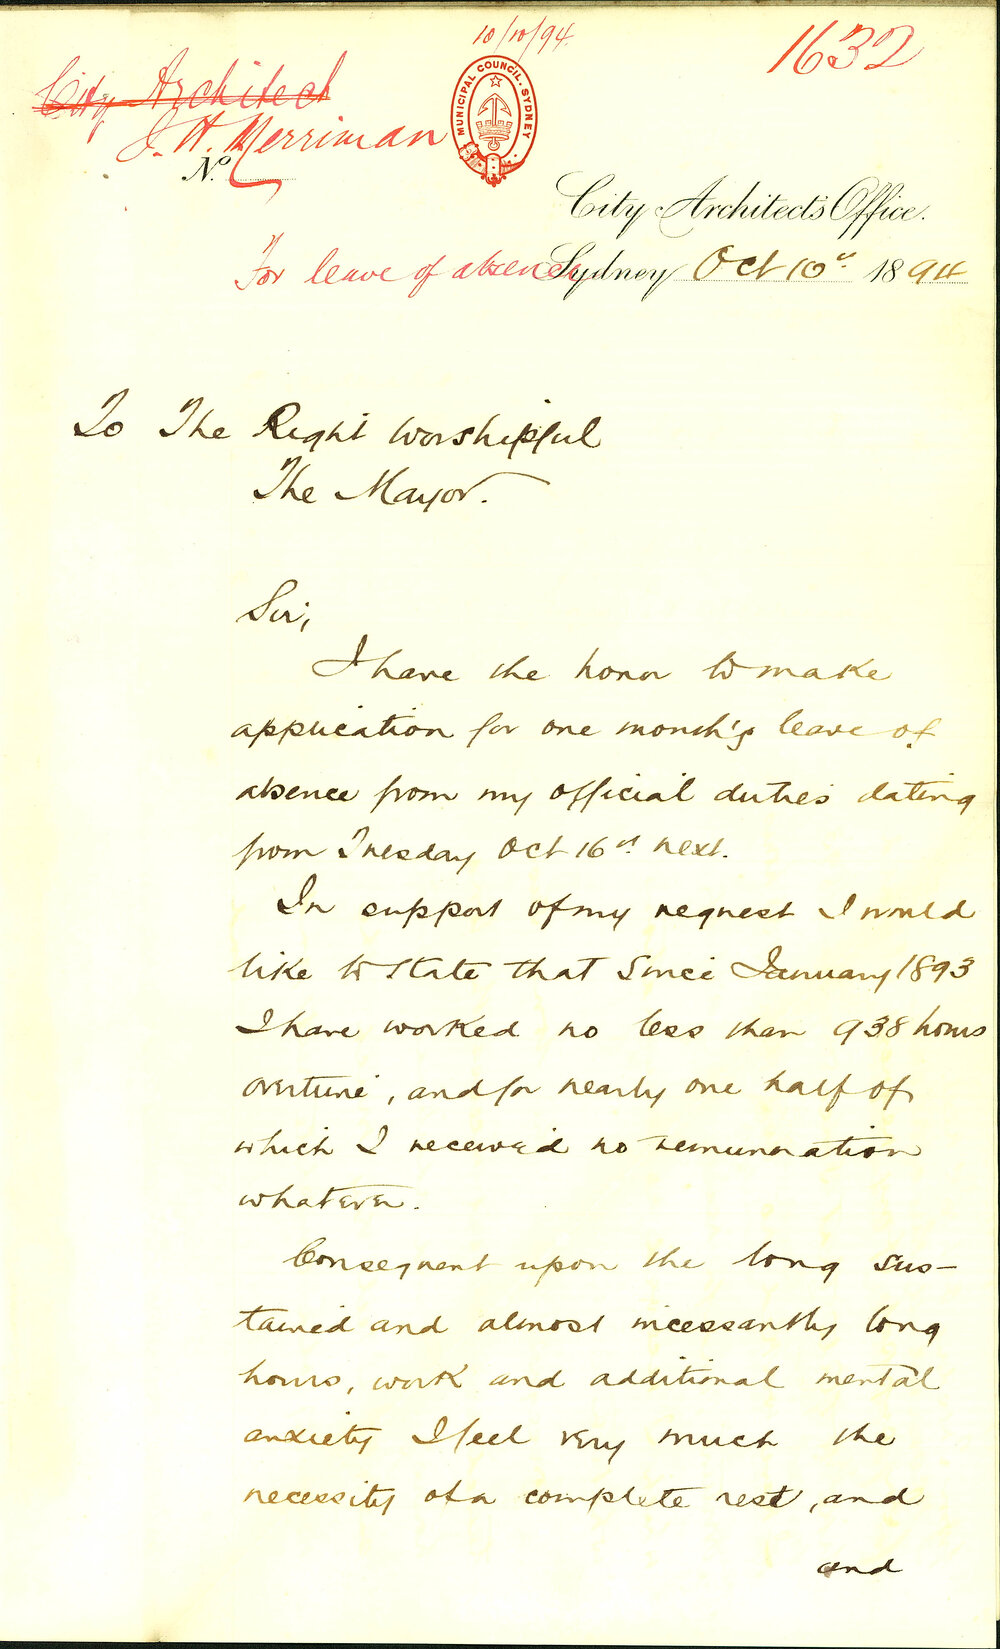 10/10/94
1632
City Architect
J. H. Merriman
MUNICIPAL COUNCIL. SYDNEY
No.
City Architect's Office.
For leave of absence
Sydney Oct 10th 1894
To The Right Worshipful
The Mayor.
Sir,
I have the honor to make
application for one month's leave of
absence from my official duties dating
from Tuesday Oct 16th next.
In support of my request I would
like to state that since January 1893
I have worked no less than 938 hours
overtime, and for nearly one half of
which I received no remuneration
whatever.
Consequent upon the long sus-
tained and almost incessantly long
hours, work and additional mental
anxiety I feel very much the
necessity of a complete rest, and
and